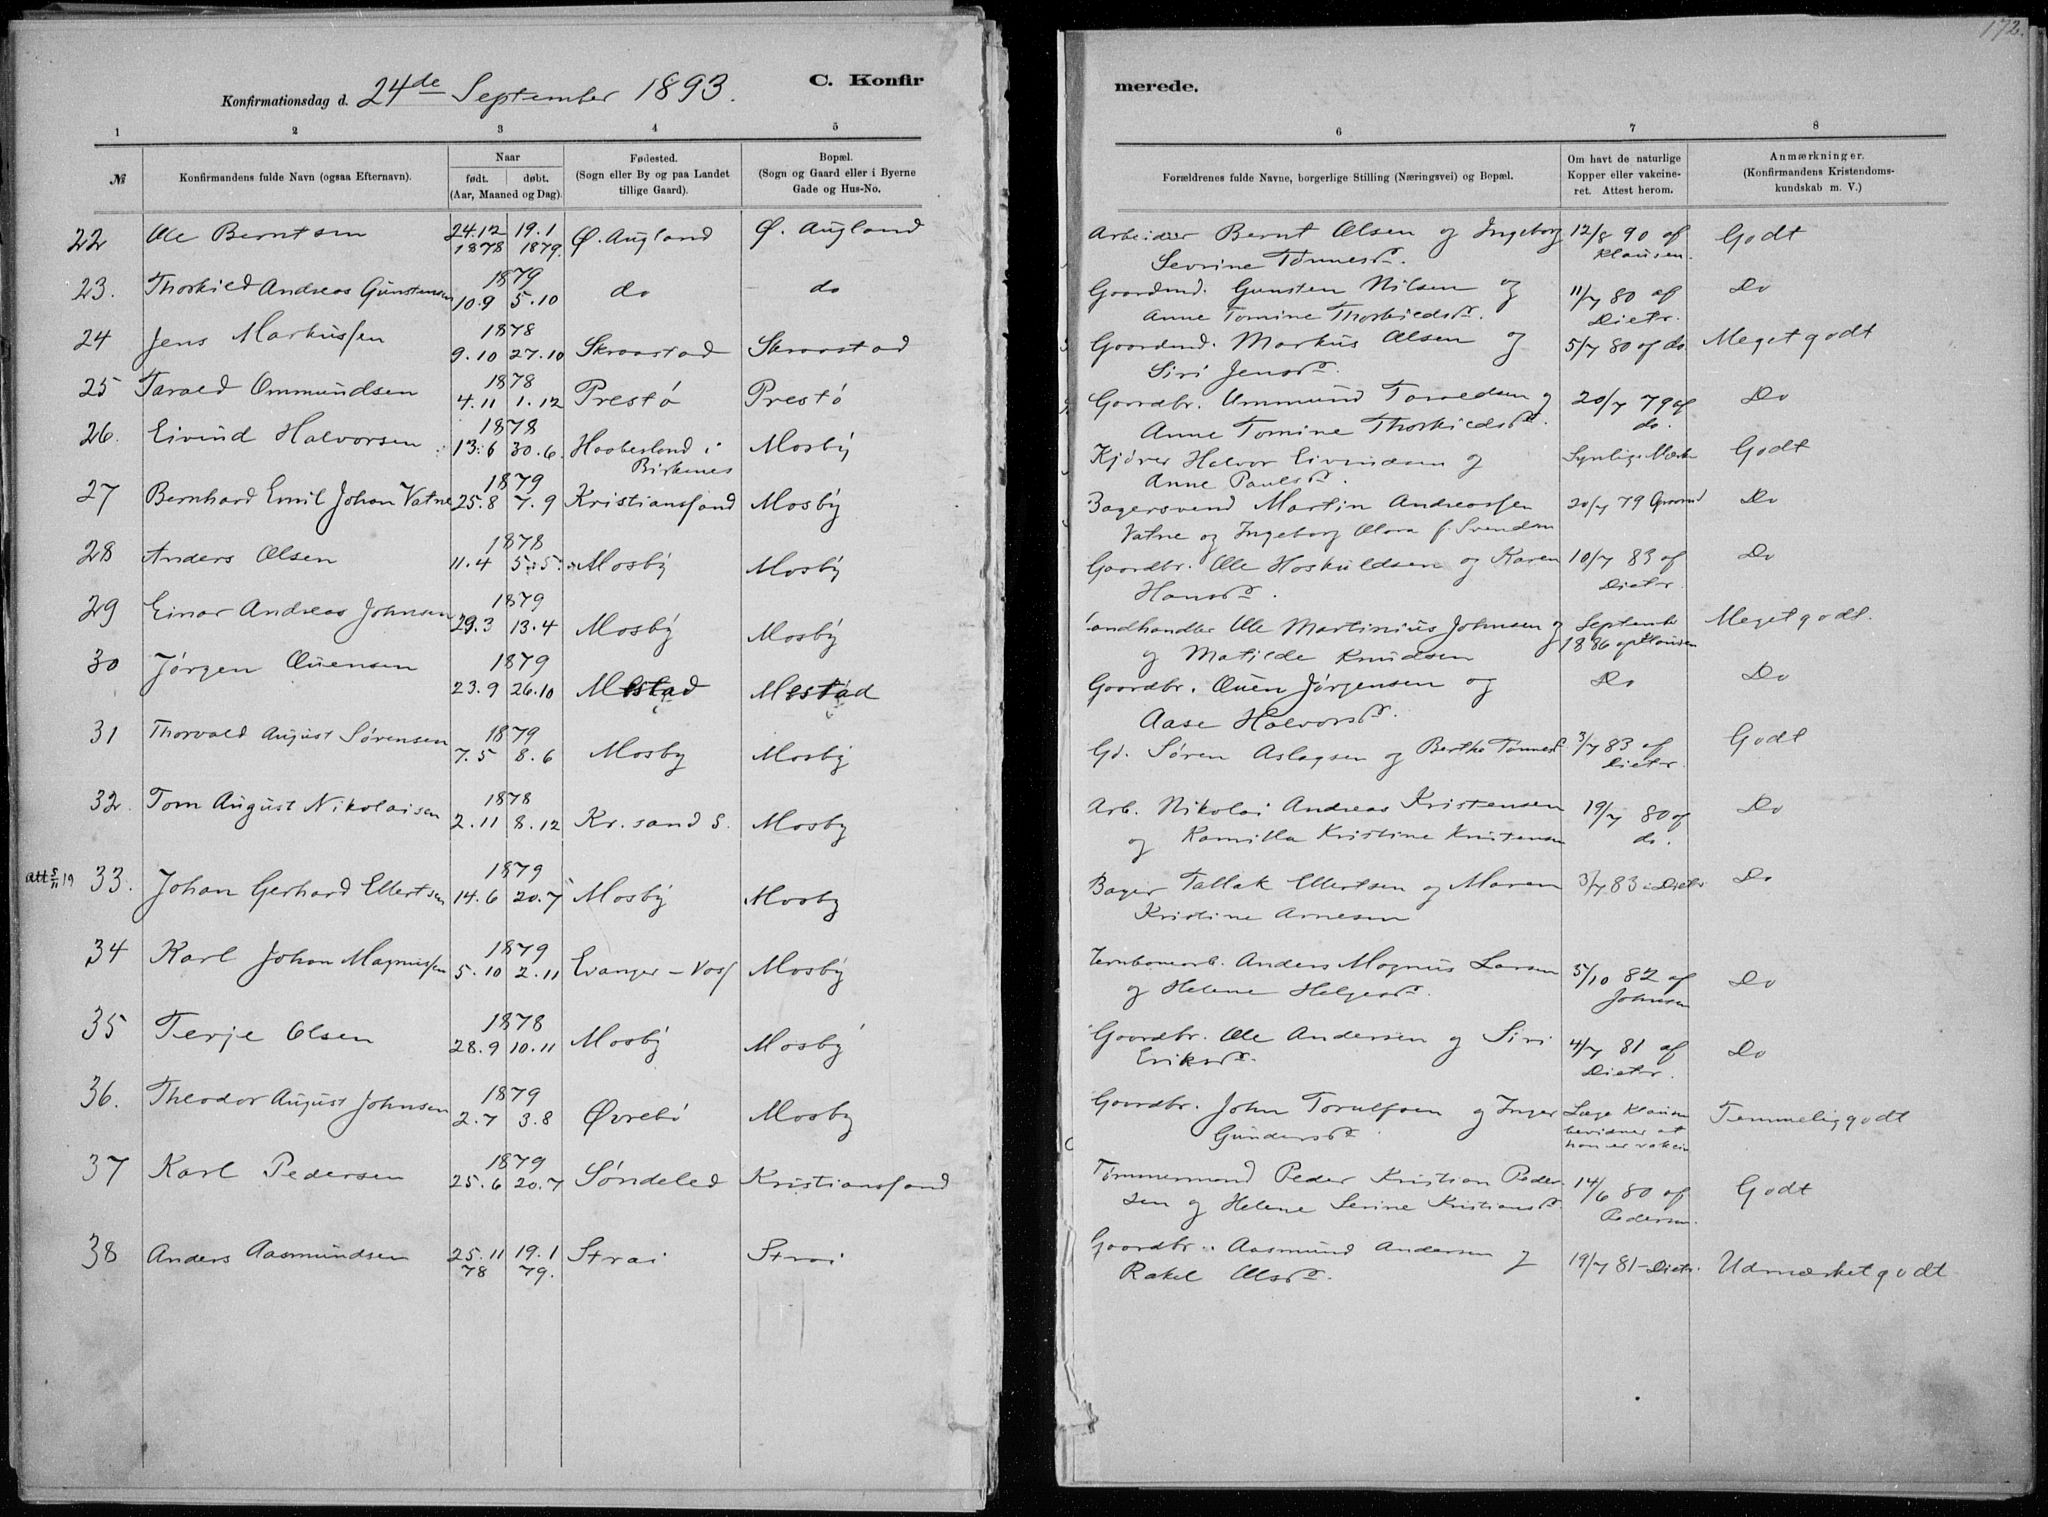 172.
Konfirmationsdag d. 24de September 1893.
C. Konfir
merede.
1 2 3 4 5
6 7 8
№
Konfirmandens fulde Navn (ogsaa Efternavn).
Naar
født. døbt.
(Aar, Maaned og Dag).
Fødested.
(Sogn eller By og paa Landet
tillige Gaard).
Bopæl.
(Sogn og Gaard eller i Byerne
Gade og Hus-No.
Forældrenes fulde Navne, borgerlige Stilling (Næringsvei) og Bopæl.
Om havt de naturlige
Kopper eller vakcine-
ret. Attest herom.
Anmærkninger.
(Konfirmandens Kristendoms-
kundskab m. V.)
22 Ole Berntsen 24.12 1878 19.1 1879. Ø. Augland Ø. Augland
Arbeider Bernt Olsen og Ingeborg 12/8 90 af Godt
Sevrine Tønnesd. Klausen.
23. Thorkild Andreas Gunstensen 1879 10.9 5.10 do do
Gaardmd. Gunsten Nilsen og 11/7 80 af Do
Anne Tomine Thorkildsd. Dietr.
24 Jens Markussen 1878 9.10 27.10 Skraastad Skraastad
Gaardmd. Markus Olsen og 5/7 80 af do Meget godt
Siri Jensd.
25 Tarald Ommundsen 1878 4.11 1.12 Prestø Prestø
Gaardbr. Ommund Taraldsen og 20/7 79 af Do
Anne Tomine Thorkildsd. do.
26. Eivind Halvorsen 1878 13.6 30.6. Haaberland i Mosby
Birkenes
Kjører Halvor Eivindsen og Synlige Mærker Godt
Anne Paulsd.
27 Bernhard Emil Johan Vatne 1879 25.8 7.9 Kristianssand Mosby
Bagersvend Martin Andreassen 20/7 79 Do
Vatne og Ingeborg Olava f. Svendsen
28 Anders Olsen 1878 11.4 5.5. Mosby Mosby
Gaardbr. Ole Hoskuldsen og Karen 10/7 83 af Do
Hansd. Dietr.
29 Einar Andreas Johnsen 1879 29.3 13.4 Mosby Mosby
Landhandler Ole Martinius Johnsen og Septembr Meget godt.
og Matilde Knudsen 1886 af Klausen
30 Jørgen Ouensen 1879 23.9 26.10 Mestad Mestad
Gaardbr. Ouen Jørgensen og Do Do
Aase Halvorsd.
31 Thorvald August Sørensen 1879 7.5 8.6 Mosby Mosby
Gd. Søren Aslagsen og Berthe Tønnesd. 3/7 83 af Godt
Dietr.
32. Tom August Nikolaisen 1878 2.11 8.12 Kr.sand S. Mosby
Arb. Nikolai Andreas Kristensen 19/7 80 af Do
og Kamilla Kristine Knutsen do.
att 5/11 19 33. Johan Gerhard Ellertsen 1879 14.6 20.7 Mosby Mosby
Bager Tallak Ellertsen og Maren 3/7 83 - Dietr. Do
Kristine Arnesen
34 Karl Johan Magnussen 1879 5.10 2.11 Evanger - Voss Mosby
Jernbanearb. Anders Magnus Larsen 5/10 82 af Do
og Helene Helgesd. Johnsen
35 Terje Olsen 1878 28.9 10.11 Mosby Mosby
Gaardbr. Ole Andersen og Siri 4/7 81 af Do
Eriksd. Dietr.
36. Theodor August Johnsen 1879 2.7 3.8 Øvrebø Mosby
Gaardbr. John Torulfsen og Inger Læge Klausen Temmelig godt
Gundersd. bevidner at
han er vakcin
37 Karl Pedersen 1879 25.6 20.7 Søndeled Kristianssand
Tømmermand Peder Kristian Peder- 14/6 80 af Godt
sen og Helene Serine Kristiansd. Pedersen.
38 Anders Aasmundsen 25.11 78 19.1 79. Strai Strai
Gaardbr. Aasmund Andersen og 19/7 81 - Dietr. Udmærket godt
Rakel Olsd.